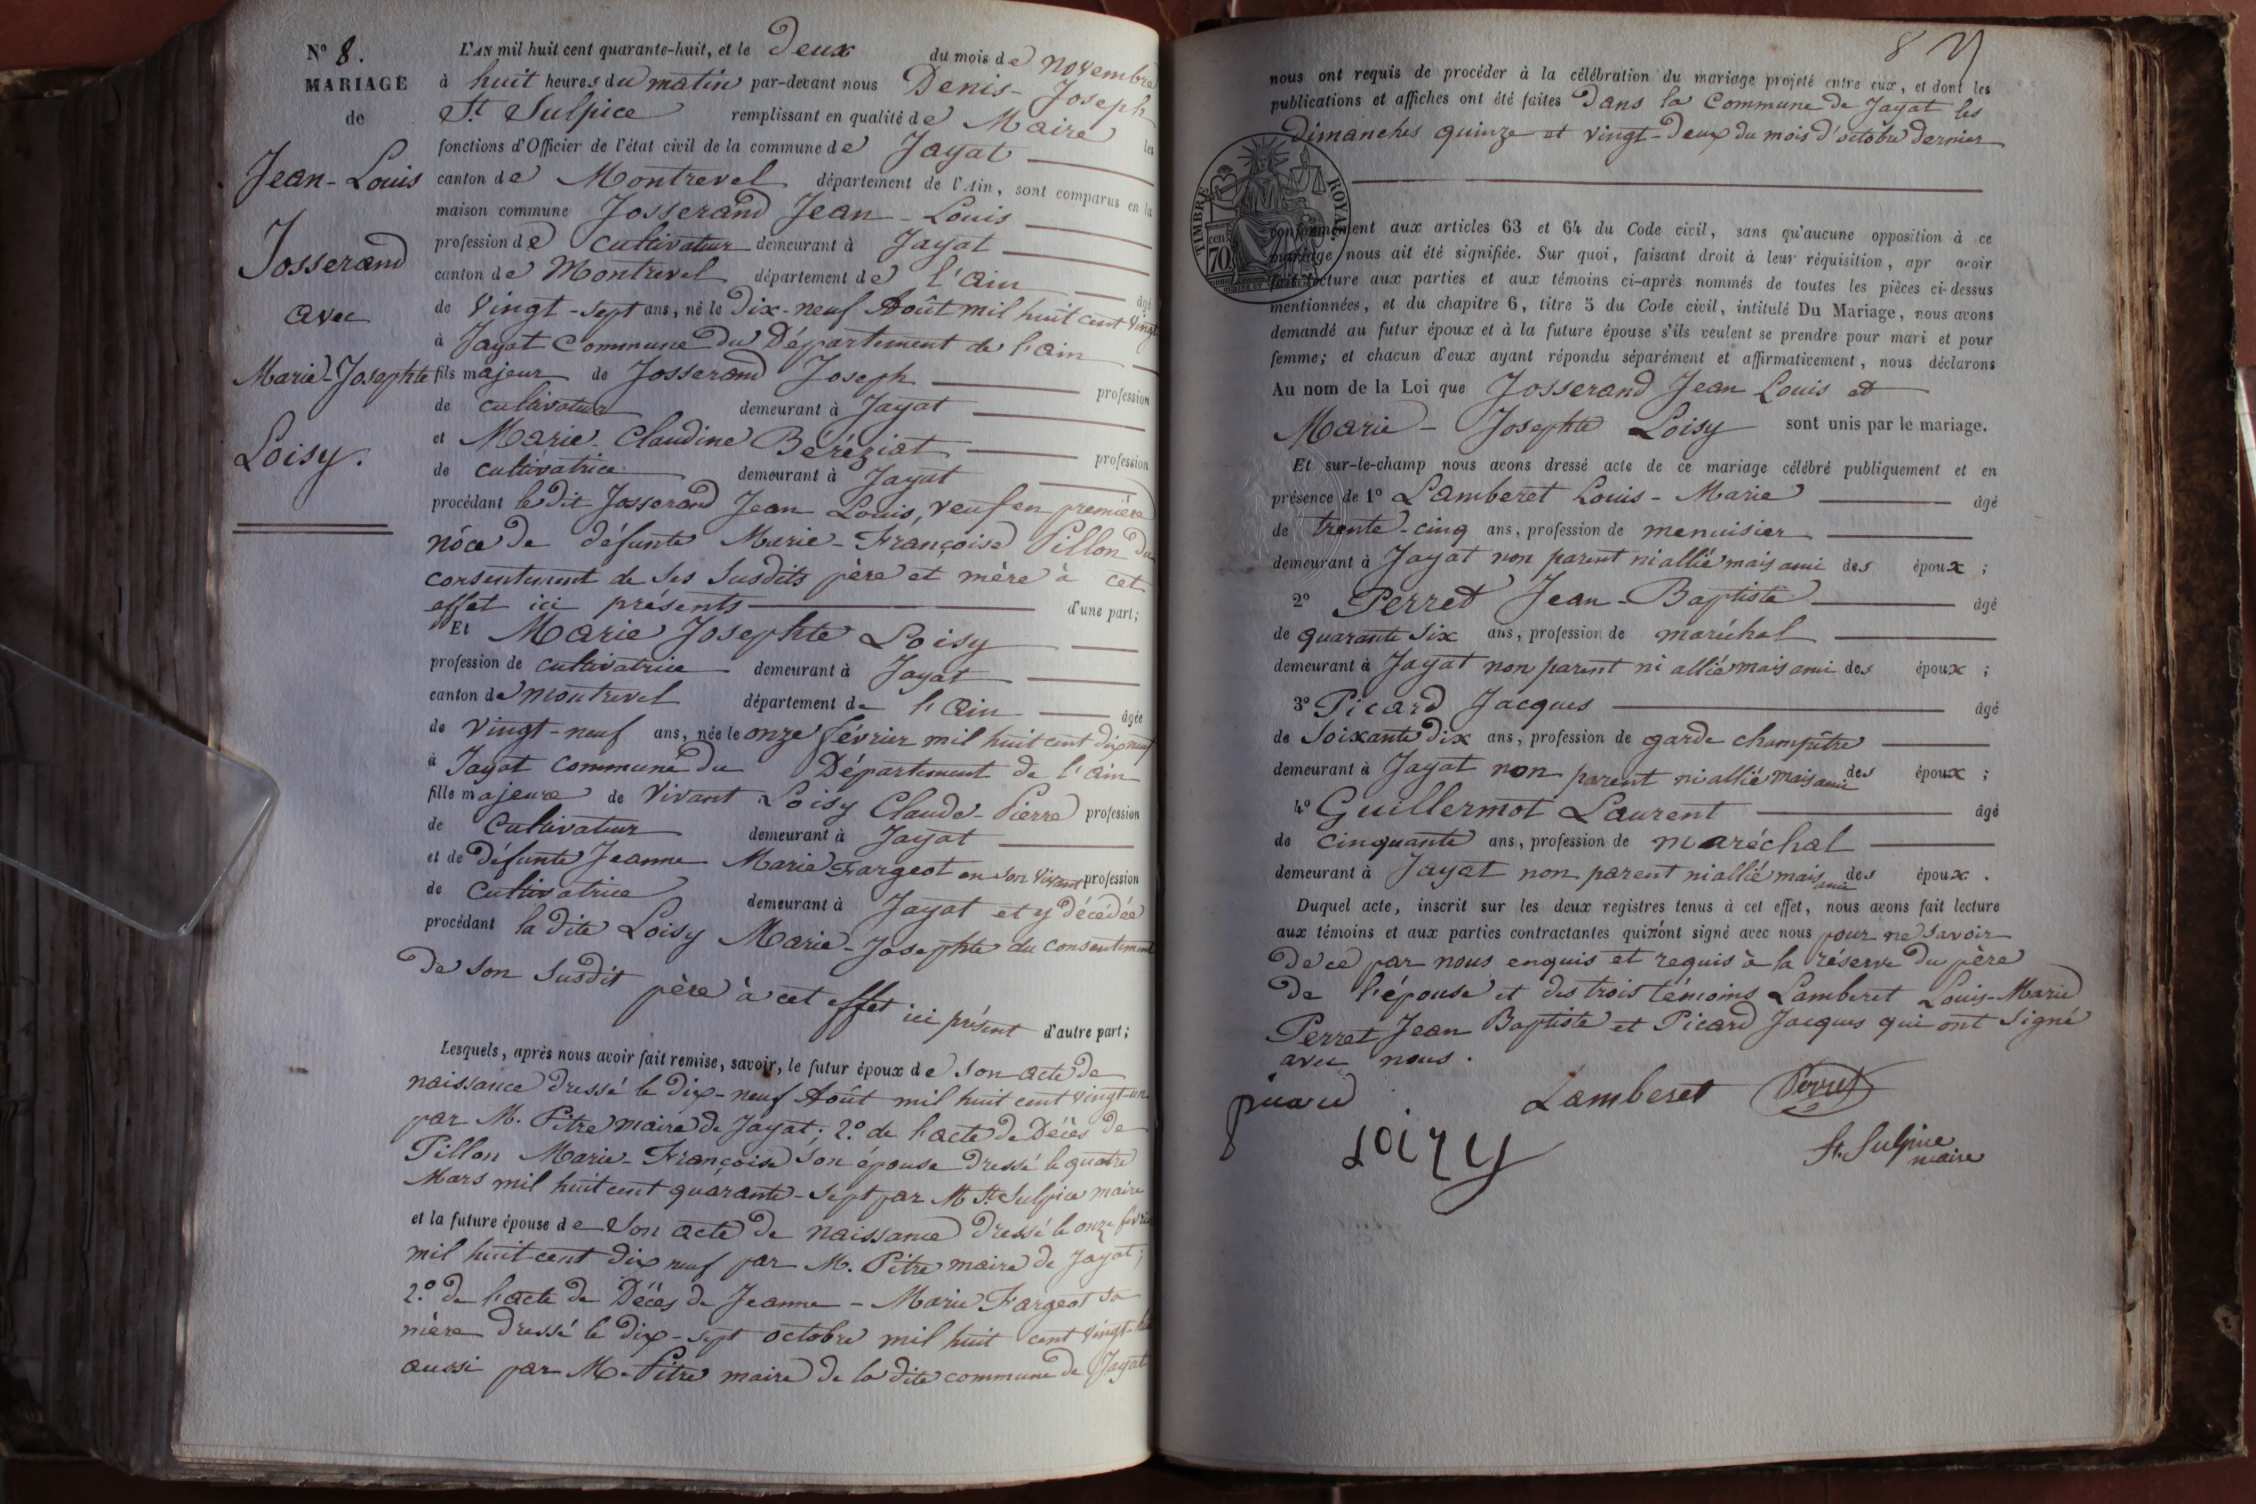 N° 8.
MARIAGE
de
Jean-Louis
Josserand
avec
Marie-Josephte
Loisy.
L'AN mil huit cent quarante-huit, et le Deux du mois de novembre
à huit heures du matin par-devant nous Denis-Joseph
St Sulpice remplissant en qualité de Maire les
fonctions d'Officier de l'état civil de la commune de Jayat
canton de Montrevel département de l'Ain, sont comparus en la
maison commune Josserand Jean-Louis
profession de cultivateur demeurant à Jayat
canton de Montrevel département de l'ain âgé
de vingt-sept ans, né le Dix-neuf Août mil huit cent vingt
à Jayat Commune du Département de l'ain
fils majeur de Josserand Joseph profession
de cultivateur demeurant à Jayat
et Marie-Claudine Béréziat profession
de cultivatrice demeurant à Jayat
procédant le dit Josserand Jean Louis, veuf en première
nôce de défunte Marie-Françoise Pillon du
consentement de ses susdits père et mère à cet
effet ici présents d'une part;
Et Marie Josephte Loisy
profession de cultivatrice demeurant à Jayat
canton de montrevel département de l'ain âgée
de vingt-neuf ans, née le onze février mil huit cent dix neuf
à Jayat commune du Département de l'ain
fille majeure de vivant Loisy Claude-Pierre profession
de Cultivateur demeurant à Jayat
et de défunte Jeanne Marie Fargeot en son vivant profession
de cultivatrice demeurant à Jayat et y décédée
procédant la dite Loisy Marie-Josephte du consentement
de son susdit père à cet effet ici présent d'autre part;
Lesquels, après nous avoir fait remise, savoir, le futur époux de son acte de
naissance dressé le dix-neuf Août mil huit cent vingt-un
par M. Pitre maire de Jayat; 2.° de l'acte de Décès de
Pillon Marie-Françoise son épouse dressé le quatre
Mars mil huit cent quarante-sept par M St Sulpice maire
et la future épouse de son acte de naissance dressé le onze février
mil huit cent dix neuf par M. Pitre maire de Jayat;
2.° de l'acte de Décès de Jeanne-Marie Fargeot sa
mère dressé le dix-sept octobre mil huit cent
aussi par M. Pitre maire de la dite commune de Jayat
8
nous ont requis de procéder à la célébration du mariage projeté entre eux, et dont les
publications et affiches ont été faites dans la Commune de Jayat les
dimanches quinze et vingt-deux du mois d'octobre dernier
TIMBRE ROYAL
70
conformément aux articles 63 et 64 du Code civil, sans qu'aucune opposition à ce
mariage nous ait été signifiée. Sur quoi, faisant droit à leur réquisition, apr avoir
fait lecture aux parties et aux témoins ci-après nommés de toutes les pièces ci-dessus
mentionnées, et du chapitre 6, titre 5 du Code civil, intitulé Du Mariage, nous avons
demandé au futur époux et à la future épouse s'ils veulent se prendre pour mari et pour
femme; et chacun d'eux ayant répondu séparément et affirmativement, nous déclarons
Au nom de la Loi que Josserand Jean Louis et
Marie-Josephte Loisy sont unis par le mariage.
Et sur-le-champ nous avons dressé acte de ce mariage célébré publiquement et en
présence de 1° Lamberet Louis-Marie âgé
de trente-cinq ans, profession de menuisier
demeurant à Jayat non parent ni allié mais ami des époux;
2° Perret Jean-Baptiste âgé
de quarante six ans, profession de maréchal
demeurant à Jayat non parent ni allié mais ami des époux;
3° Picard Jacques âgé
de soixante dix ans, profession de garde champêtre
demeurant à Jayat non parent ni allié mais ami des époux;
4° Guillermot Laurent âgé
de cinquante ans, profession de maréchal
demeurant à Jayat non parent ni allié mais ami des époux.
Duquel acte, inscrit sur les deux registres tenus à cet effet, nous avons fait lecture
aux témoins et aux parties contractantes qui n'ont signé avec nous pour ne savoir
de ce par nous enquis et requis à la réserve du père
de l'épouse et des trois témoins Lamberet Louis-Marie
Perret Jean Baptiste et Picard Jacques qui ont signé
avec nous.
picard Lamberet Perret
Loizy St. Sulpice
maire